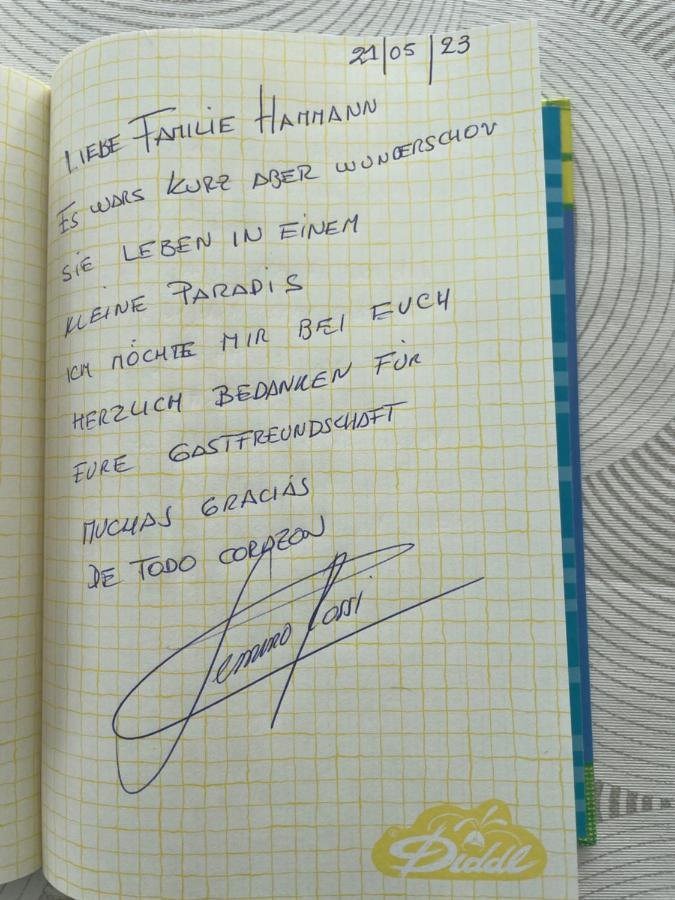 21/05/23
LIEBE FAMILIE HAMMANN
ES WARS KURZ ABER WUNDERSCHON
SIE LEBEN IN EINEM
KLEINE PARADIS
ICH MÖCHTE MIR BEI EUCH
HERZLICH BEDANKEN FÜR
EURE GASTFREUNDSCHAFT
MUCHAS GRACIAS
DE TODO CORAZON
Diddl